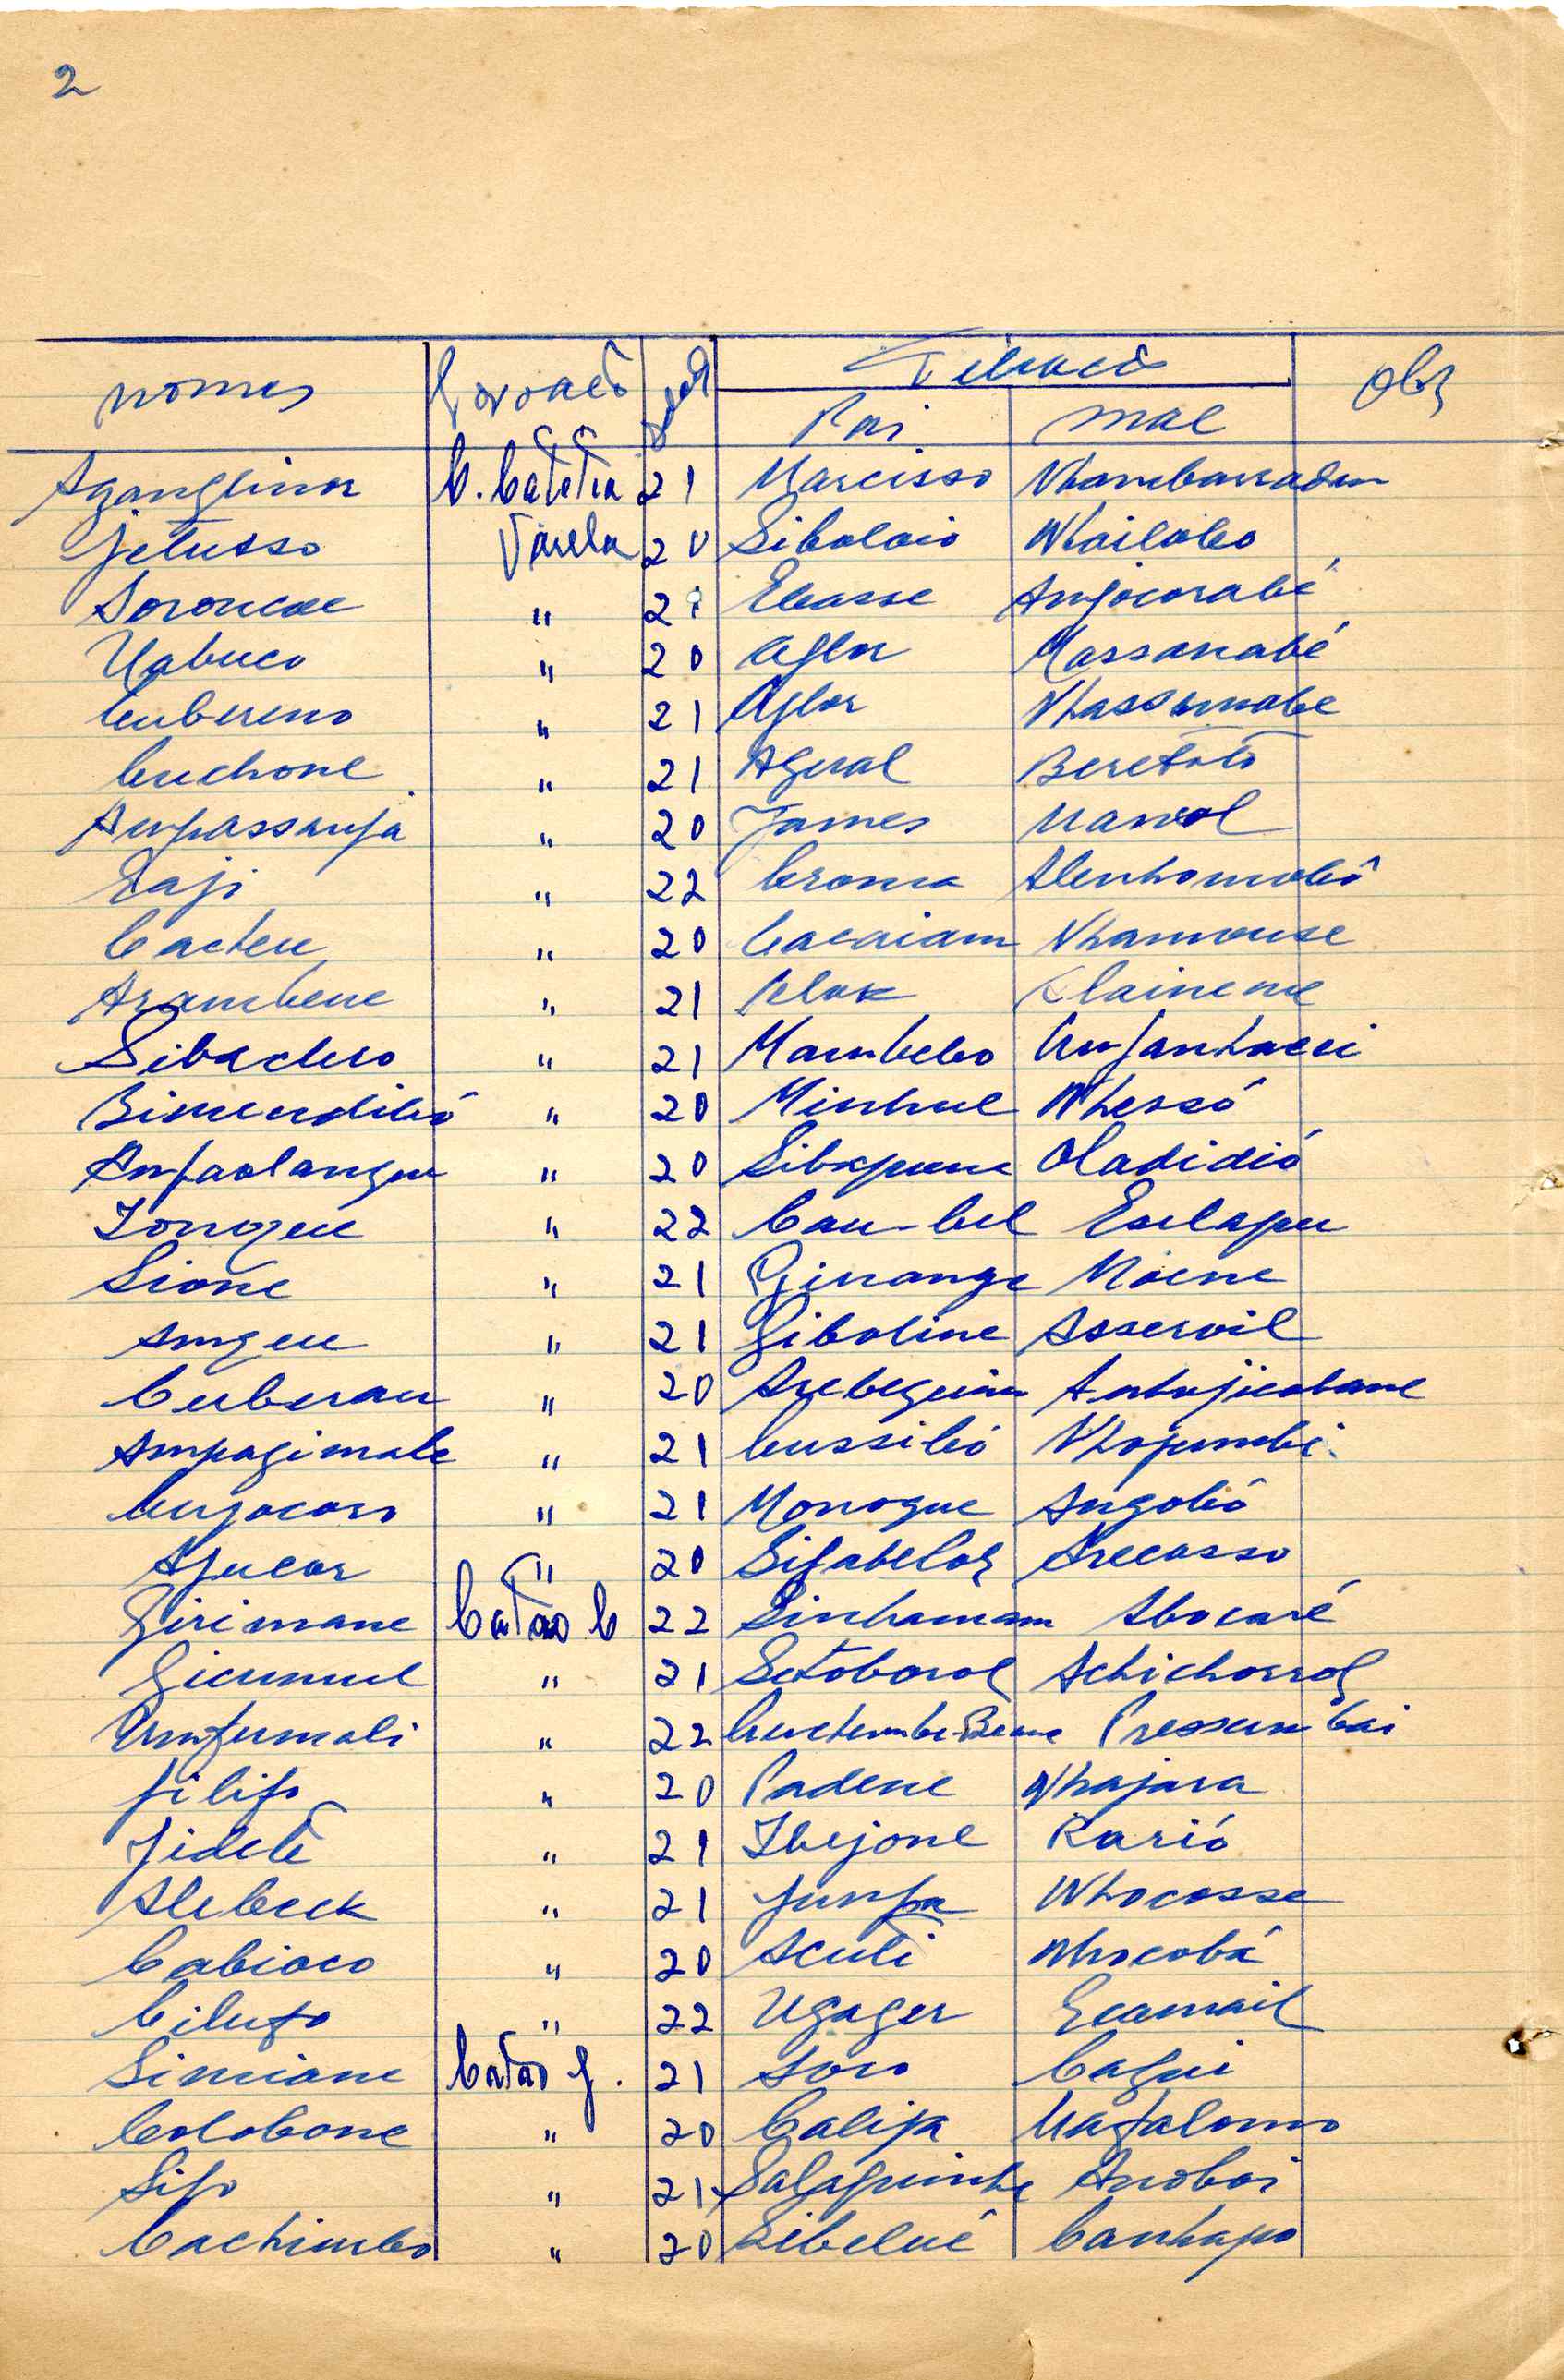 2
Nomes Povoação Idade Filiação Obs
Pai Mae
Aganglinor C. Catetia 21 Narcisso Nhambarradem
Jetusso Varela 20 Sibolaio Nhailobo
Soroncae " 21 Ebasse Anjocorabé
Uabuco " 20 Aglor Massanabé
Cubereno " 21 Aglor Nhassumobe
Cuchone " 21 Agual Beretótó
Ampassanja " 20 James Nanool
Eaji " 22 Croma Alenhomobó
Cacheu " 20 Cacaiam Nhamouse
Arambene " 21 Blak Elaineme
Sibachero " 21 Mambebo
Bimendibó " 20 Minhul Nhessó
" 20 Sibapume Oladidió
Tongue " 22 Cau-bel Esclapu
Sione " 21 Girrange Noene
Angeu " 21 Giboline Asservil
Cuberau " 20
Ampagimale " 21 Cussilió Nhojumbi
Cujocoro " 21 Monogue Angobó
Ajucar " 20 Sifabelol Arecosso
Girimane Catão C 22 Sinhamam Abocaré
Gicunuel " 21 Setoborol Achichorrol
Umfumali " 22 Pressumbai
Filifo " 20 Padene Nhajara
Jideté " 21 Ibejone Karió
Alebeck " 21 Junfa Nhocosse
Cabioco " 20 Acuti Nhocobá
Cilufo " 22 Ugager Ecamail
Simiane Catão J. 21 Soro Cagui
Colobone " 20 Califa Nafalomo
Sifo " 21 Salaguinhe Anoboi
Cachimbo " 20 Sibelué Canhapo